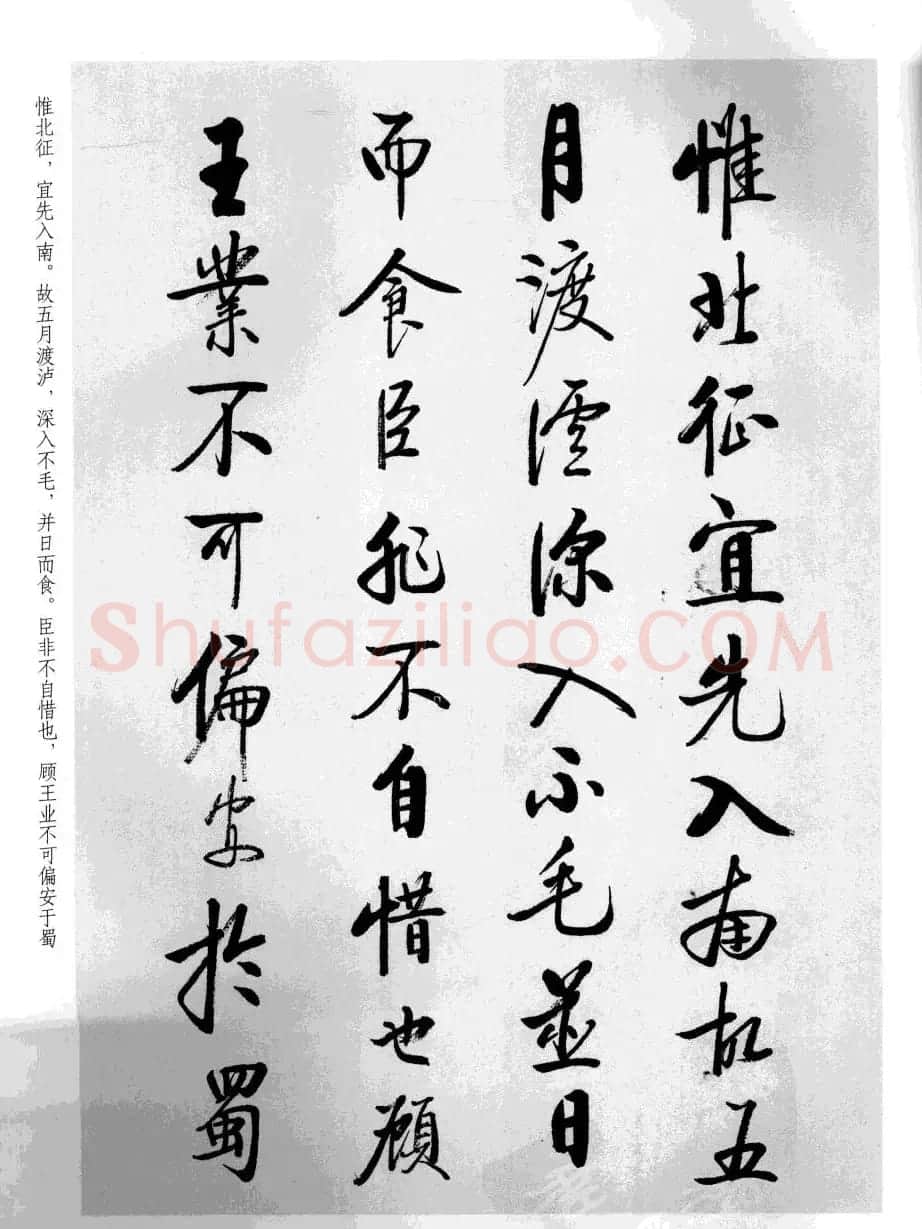 惟北征宜先入南故五
月渡瀘深入不毛並日
而食臣非不自惜也顧
王業不可偏安於蜀
惟北征，宜先入南。故五月渡泸，深入不毛，并日而食。臣非不自惜也，顾王业不可偏安于蜀
Shufaziliao.COM